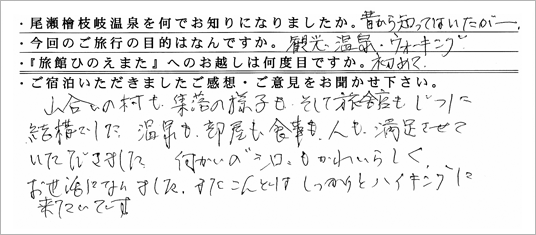 ・尾瀬檜枝岐温泉を何でお知りになりましたか。昔から知ってはいたが―
・今回のご旅行の目的はなんですか。観光・温泉・ウォーキング
・『旅館ひのえまた』へのお越しは何度目ですか。初めて
・ご宿泊いただきましたご感想・ご意見をお聞かせ下さい。
山合いの村も、集落の様子も、そして旅館もじつに
結構でした。温泉も、部屋も、食事も、人も、満足させて
いただきました。何かいの"シロ"もかわいらしく、
お世話になりました。またこんどは しっかりとハイキングに
来たいです